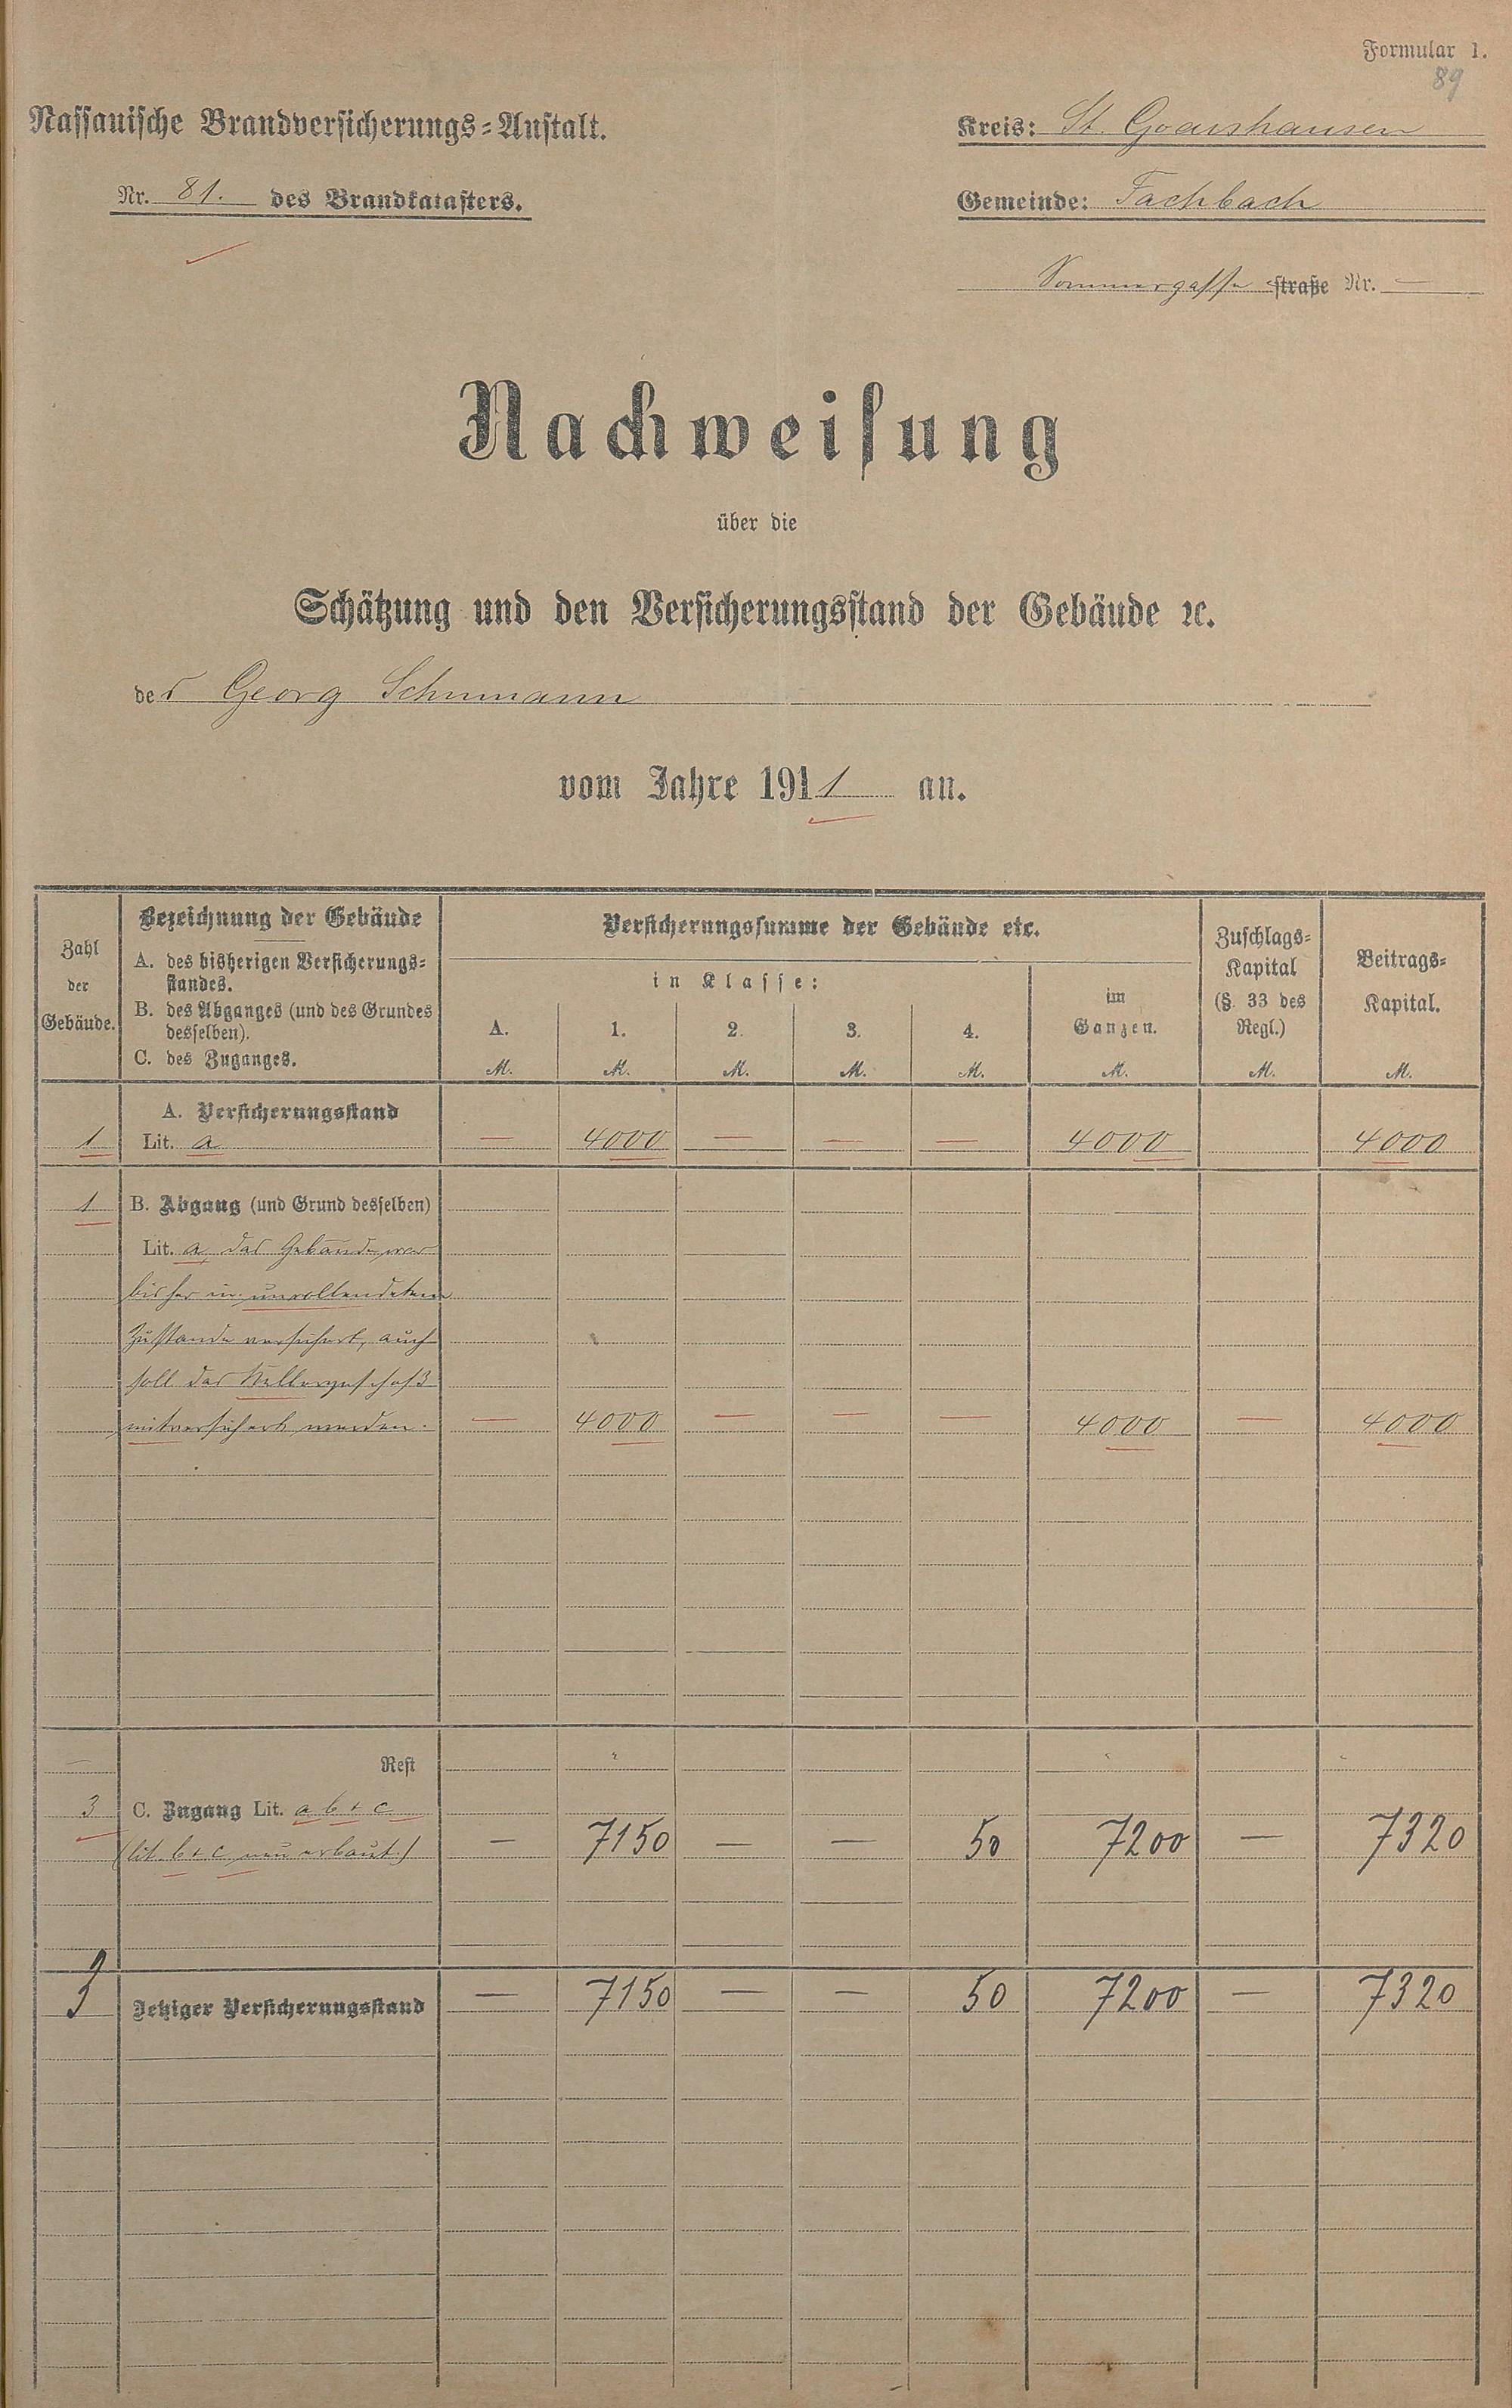 Formular 1.
89
Nassauische Brandversicherungs-Anstalt.
Kreis: St. Goarshausen
Nr. 81. des Brandkatasters.
Gemeinde: Fachbach
Sommergasse straße Nr. —
Nachweisung
über die
Schätzung und den Versicherungsstand der Gebäude ꝛc.
des Georg Schumann
vom Jahre 1911 an.
Zahl der Gebäude.
Bezeichnung der Gebäude
A. des bisherigen Versicherungs-
standes.
B. des Abganges (und des Grundes
desselben).
C. des Zuganges.
Versicherungssumme der Gebäude etc.
in Klasse:
A. 1. 2. 3. 4.
im Ganzen.
M. M. M. M. M. M. M. M.
Zuschlags-
Kapital
(§. 33 des
Regl.)
Beitrags-
Kapital.
A. Versicherungsstand
1 Lit. a — 4000 — — — 4000 4000
1 B. Abgang (und Grund desselben)
Lit. a, das Gebäude war
bisher in unvollendetem
Zustande versichert, auch
soll das Kellergeschoß
mitversichert werden. — 4000 — — — 4000 — 4000
— Rest
3 C. Zugang Lit. a b + c
(lit. b + c neu erbaut.) — 7150 — — 50 7200 — 7320
3 Jetziger Versicherungsstand — 7150 — — 50 7200 — 7320